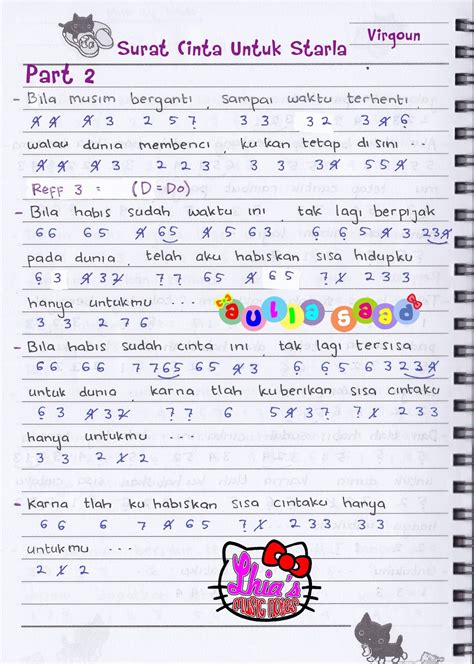 Surat Cinta Untuk Starla
Virgoun
Part 2
- Bila musim berganti, sampai waktu terhenti
4̸ 4̸ 4̸ 3 2 5 7 3 3 3 2 3 4̸ 6
walau dunia membenci, ku kan tetap di sini ...
4̸ 4̸ 4̸ 3 2 2 3 3 3 3 3 4̸ 5 5 4̸
Reff 3 = (D = Do)
- Bila habis sudah waktu ini, tak lagi berpijak
6 6 6 5 4̸ 6 5 4̸ 5 6 5 6 6 5 4̸ 3 2 3 4̸
pada dunia, telah aku habiskan sisa hidupku
6 3 4̸ 3 2 7 7 6 5 4̸ 6 5 7 1̸ 2 3 3
hanya untukmu ...
3 3 2 7 6
aulia saad
- Bila habis sudah cinta ini, tak lagi tersisa
6 6 6 6 7 7 6 5 6 5 4̸ 3 6 6 5 6 3 2 3 4̸
untuk dunia karna tlah kuberikan sisa cintaku
6 3 4̸ 3 2 7 7 6 5 4̸ 3 7 7 1̸ 2 3 3
hanya untukmu ...
3 3 2 1̸ 2
- Karna tlah ku habiskan sisa cintaku hanya
6 6 6 7 4̸ 6 5 7 1̸ 2 3 3 3 3
untukmu ...
2 1̸ 2
Lhia's
MUSIC NOTES